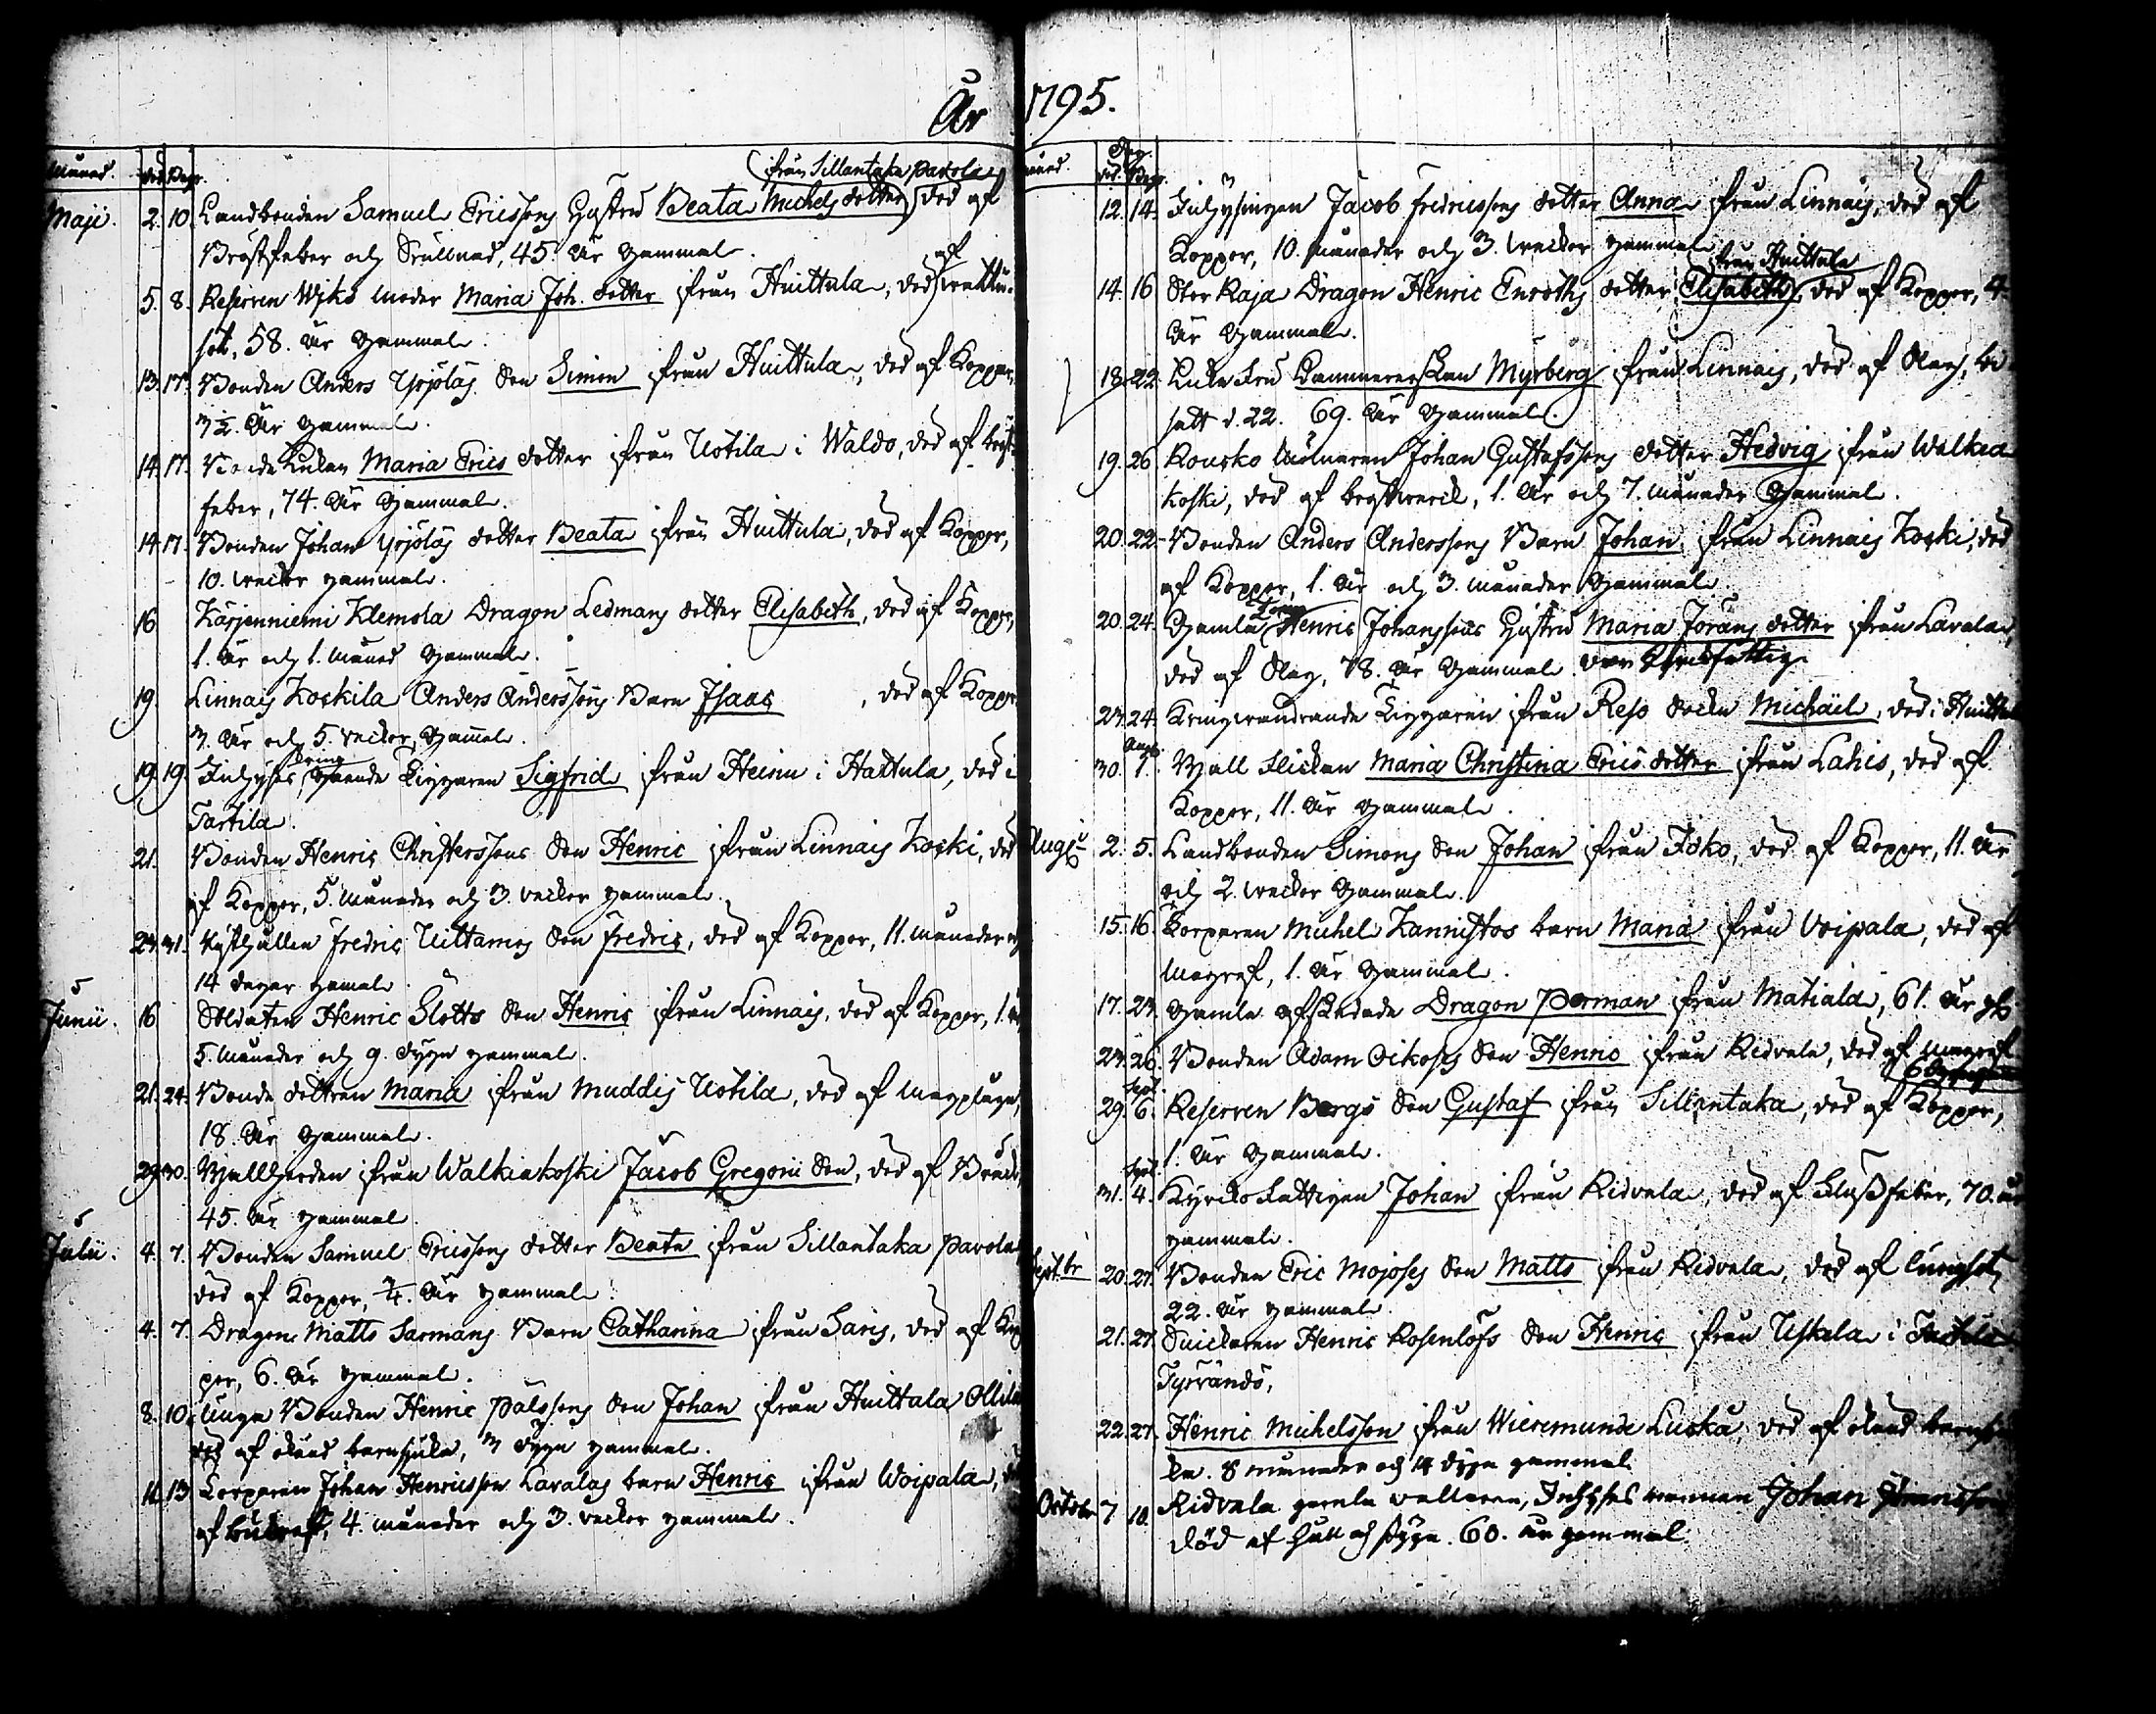 År 1795.
Månad. död Begr.
från Sillantaka Pavola
Maji. 2. 10. Landbonden Samuel Ericssons Hustru Beata Michels dotter död af
Bröstfeber och Svullnad, 45 År Gammal.
5. 8. Reserven Wiks moder Maria Joh. dotter ifrån Huittula, död af wattu-
sot, 58. År Gammal.
13. 17. Bonden Anders Yrjölas Son Simon ifrån Huittula, död af Koppor,
3½. År Gammal.
14. 17. Bonde Enkan Maria Erics dotter ifrån Uotila i Waldo, död af bröst-
feber, 74. År Gammal.
14. 17. Bonden Johan Yrjölas dotter Beata ifrån Huittula, död af Koppor,
10. weckor gammal.
16 Kärjenniemi Klemola Dragon Ledmans dotter Elisabeth, död af Koppor,
1. År och 1. Månad Gammal.
19. Linnais Koskila Anders Anderssons Barn Isaac , död af Koppor
3. År och 5. veckor, Gammal.
19. 19. Inhyses kring gående Tiggaren Sigfrid ifrån Heinu i Hattula, död i
Tartila.
21. Bonden Henric Christerssons Son Henric ifrån Linnais Koski, död
af Koppor, 5. Månader och 3. veckor gammal.
23. 31. Fredric Uittamos Son Fredric, död af Koppor, 11. Månader och
14 dagar gamal.
Junii. 16 Soldaten Henric Slotts Son Henric ifrån Linnais, död af Koppor, 1. år
5. Månader och 9. dygn gammal.
21. 24. Bonde dottren Maria ifrån Muddis Uotila, död af Magplåga,
18. År Gammal.
29. 30. ifrån Walkiakoski Jacob Gregorii Son, död af
45. År gammal.
Julii. 4. 7. Bonden Samuel Ericssons dotter Beata ifrån Sillantaka Pavola
död af Koppor, ¾. År gammal.
4. 7. Dragon Matts Sarmans Barn Catharina ifrån Saris, död af Kop
por, 6. År gammal.
8. 10. Unga Bonden Henric Pålssons Son Johan ifrån Huittula Ollila
död af okänd barnsjuka, 3 dygn gammal.
11. 13 Torparen Johan Henricsson Lavalas barn Henric ifrån Woipala,
af 4. månader och 3. veckor gammal.
Månad. Dag död. Begr.
12. 14. Inhysingen Jacob Fredricssons dotter Anna ifrån Linnais, död af
Koppor, 10. Månader och 3. weckor gammal
från Huittula
14. 16 Stor Raja Dragon Henric Enroths dotter Elisabeth, död af Koppor, 4.
År Gammal.
18. 22. Enke Fru Kammererskan Myrberg ifrån Linnais, död af Slag, bi
satt d. 22. 69. År Gammal.
19. 26 Rousko Mölnaren Johan Gustafssons dotter Hedvig ifrån Walkea
koski, död af bröstwerck, 1. År och 7. månader Gammal.
20. 22. Bonden Anders Anderssons Barn Johan ifrån Linnais Koski, död
af Koppor, 1. År och 3. månader Gammal.
20. 24. Gamla Henric Johanssons Hustru Maria Jörans dotter ifrån Lavala,
död af Slag, 78. År Gammal.
23. 24. Kringwandrande Tiggaren ifrån Reso Socken Michaël, död i Huittula
30. Aug. 1. Wall flickan Maria Christina Erics dotter ifrån Lahis, död af
Koppor, 11. År Gammal.
Augs. 2. 5. Landbonden Simons Son Johan ifrån Joko, död af Koppor, 11. År
och 2. weckor Gammal.
15. 16. Torparen Michel Kannistos barn Maria ifrån Voipala, död af
Magref, 1. År Gammal.
17. 23. Gamla afskedade Dragon Perman ifrån Matiala, 61. År
23. 26. Bonden Adam Oikoses Son Henric ifrån Ridvala, död af Magref
29. Sept. 6. Reserven Bergs Son Gustaf ifrån Sillantaka, död af Koppor,
1. År Gammal.
31. Sept. 4. Kyrko Fattigen Johan ifrån Ridvala, död af Flussfeber, 70. år
gammal.
Septbr 20. 27. Bonden Eric Mojoses Son Matts ifrån Ridvala, död af lungsot,
22. År gammal.
21. 27. Snickaren Henric Rosenlöfs Son Henric ifrån Uskala i
Tyrvändö,
22. 27. Henric Michelsson ifrån Wieremunde Luska, död af okänd barnsju
ka. 8 månader och 14 dygn gammal
October 7. 10. Ridvala gamla Inhyses mannen Johan
död af håll och stygn. 60. År gammal.